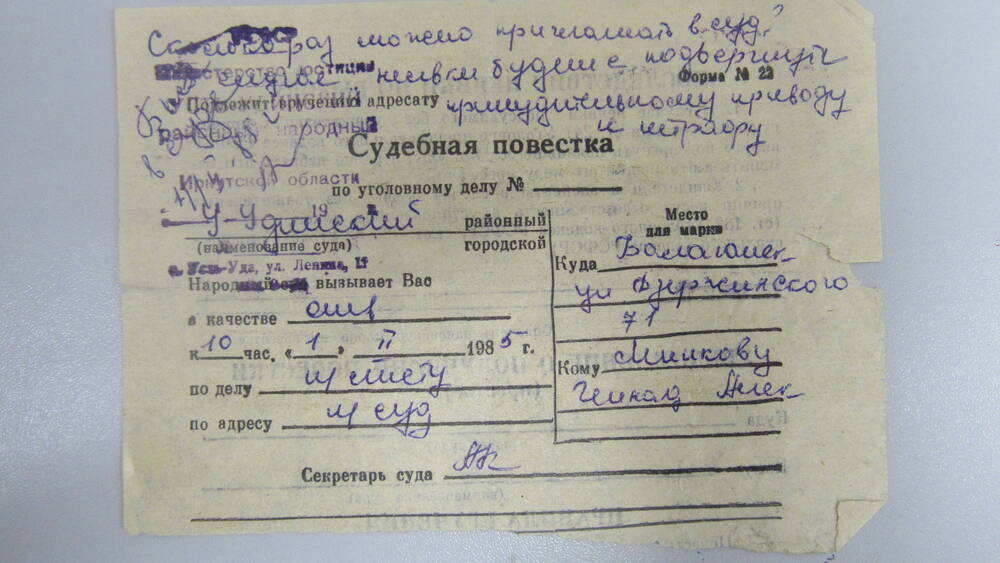 Сколько раз можно приглашать в суд?
В случае неявки будете подвергнуты
Форма № 22
Подлежит вручению адресату принудительному приводу
районный народный и штрафу
Судебная повестка
Иркутской области
по уголовному делу №
19
У-Удинский районный
(наименование суда) городской
с. Усть-Уда, ул. Ленина, 17
Народный вызывает Вас
в качестве отв
к 10 час. « 1 » II 1985 г.
по делу
по адресу н/суд
Секретарь суда
Место
для марки
Куда Балаганск
ул Дзержинского
71
Кому Мишкову
Геннад Алек